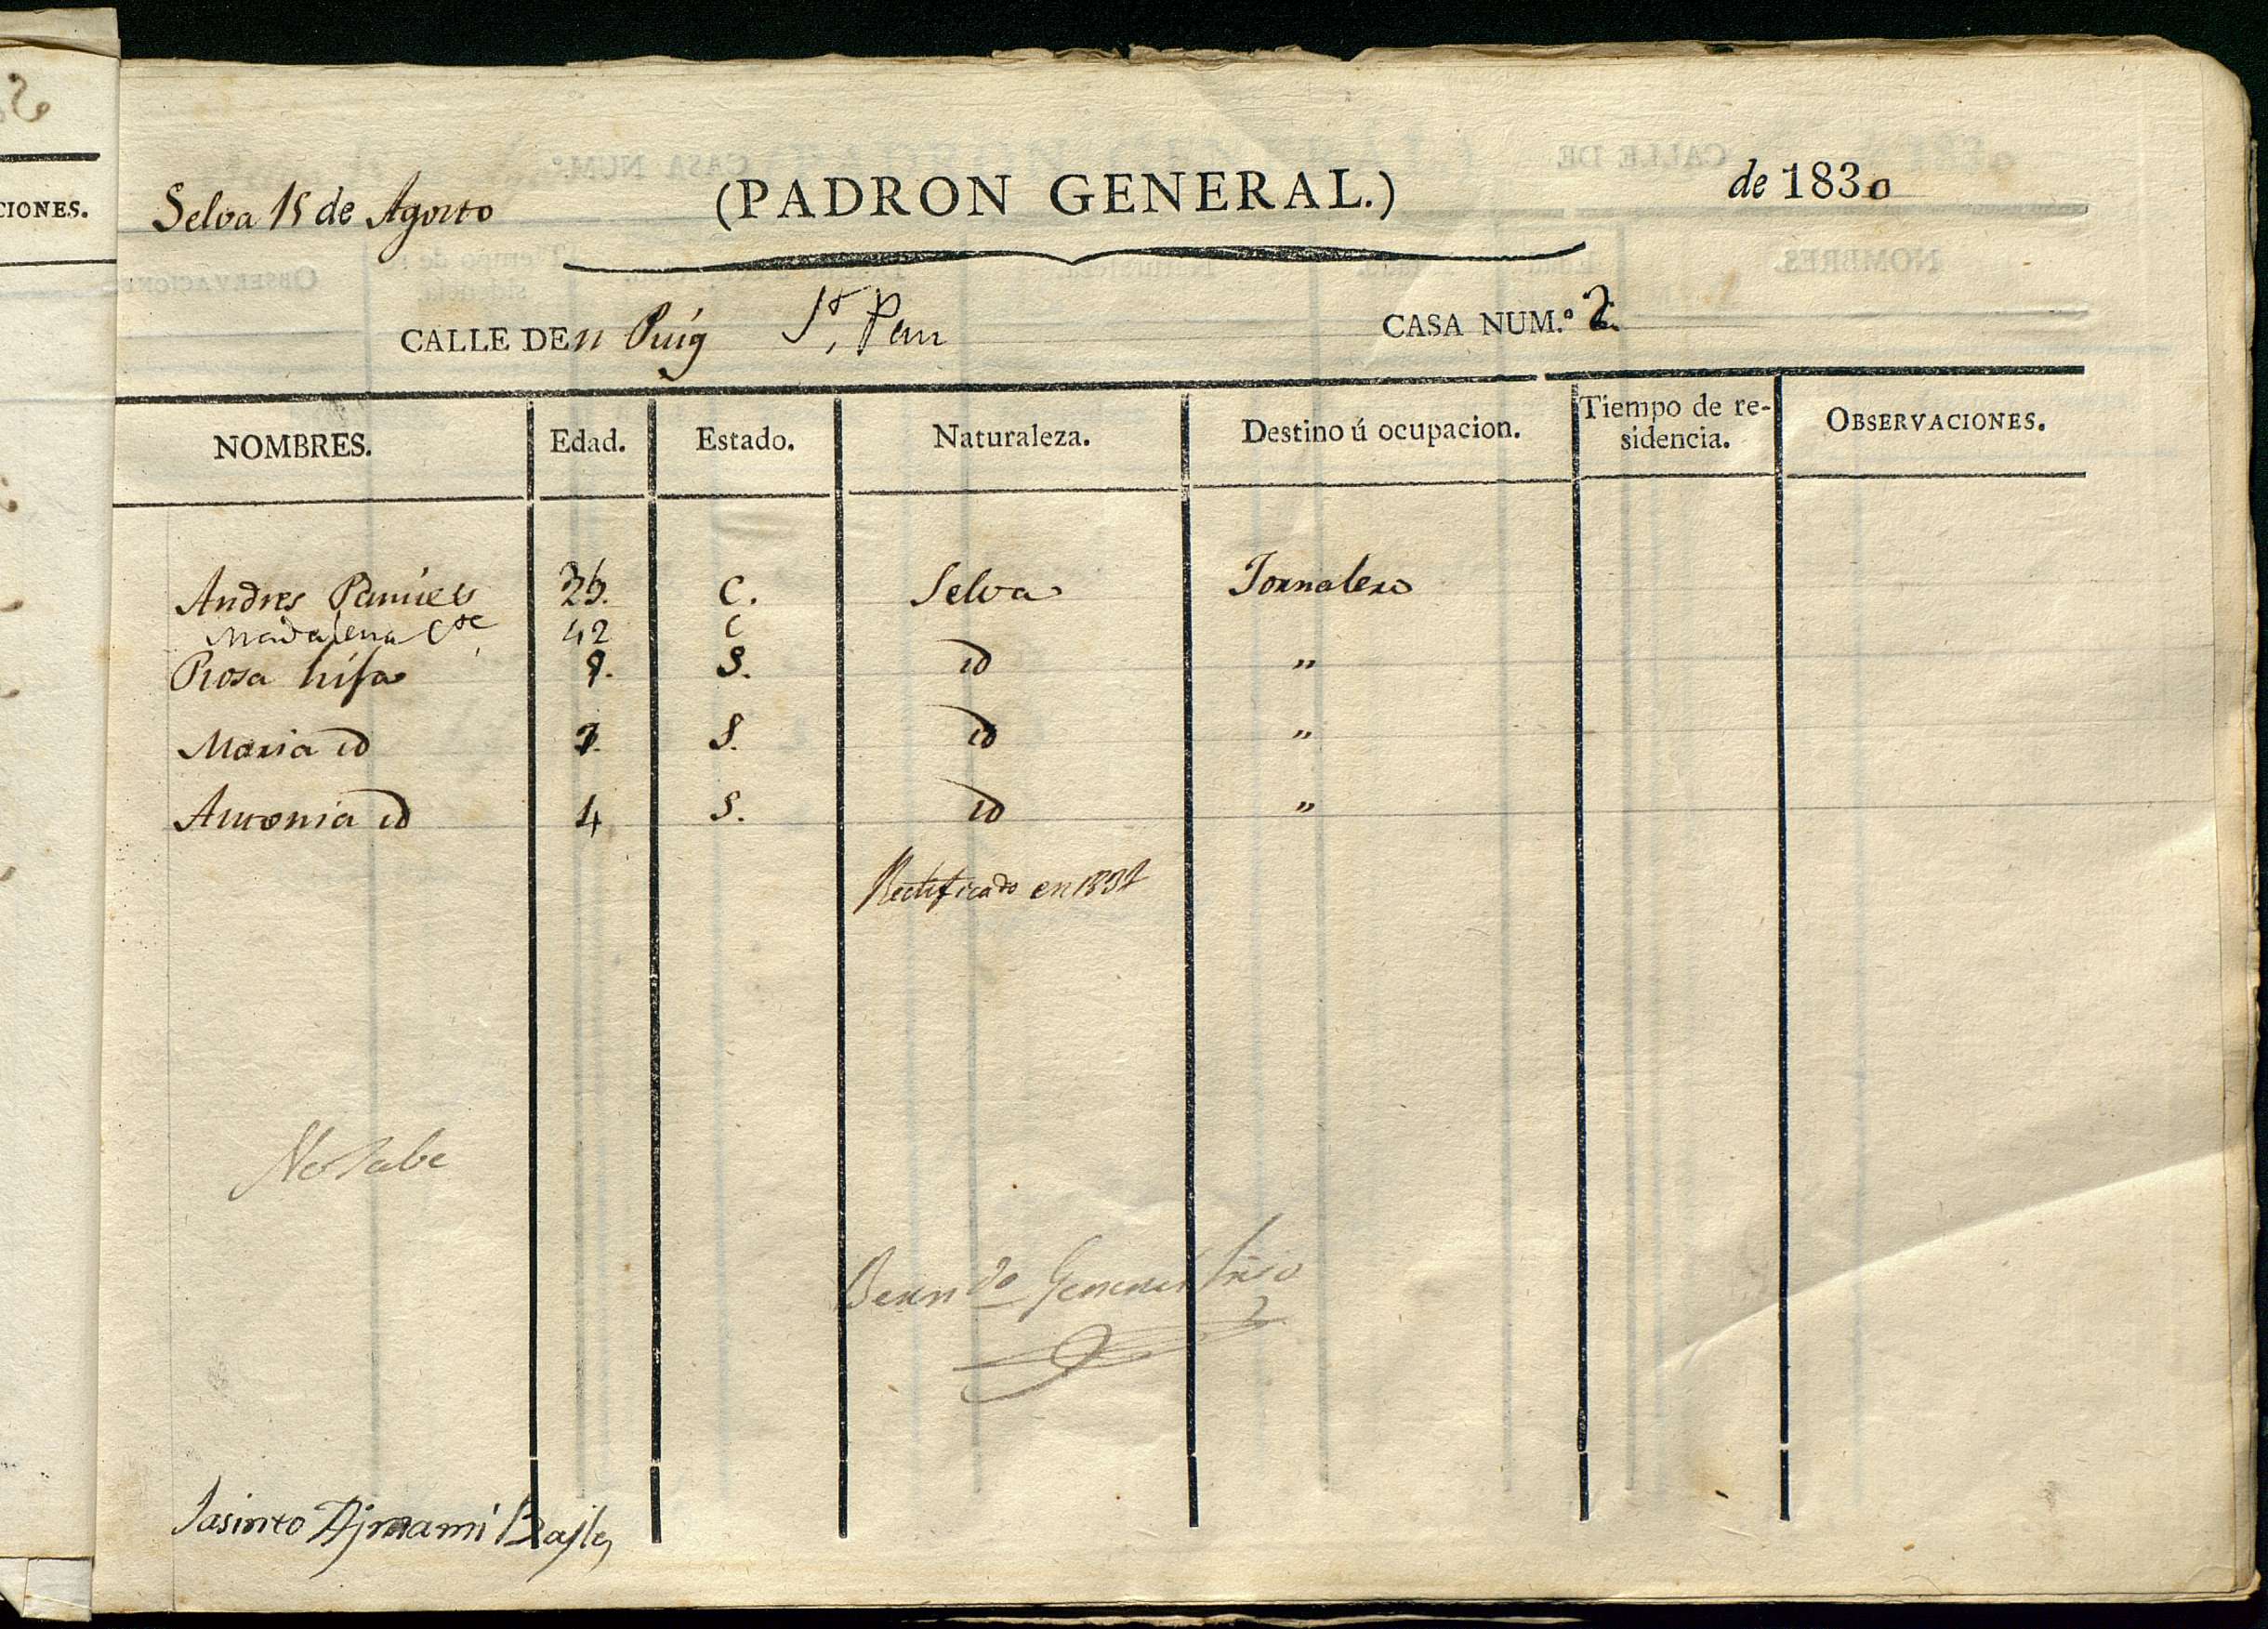 CIONES.
Selva 15 de Agosto (PADRON GENERAL.) de 1830
CALLE DEn Puig Sr. Pau CASA NUM.º 2
NOMBRES. Edad. Estado. Naturaleza. Destino ú ocupacion. Tiempo de re-sidencia. OBSERVACIONES.
Andres C. Selva Jornalero
Madalena 42 C
Rosa hija S. id "
Maria id S. id "
Antonia id 4 S. id "
Rectificado en
No sabe
Jasinto Bajle